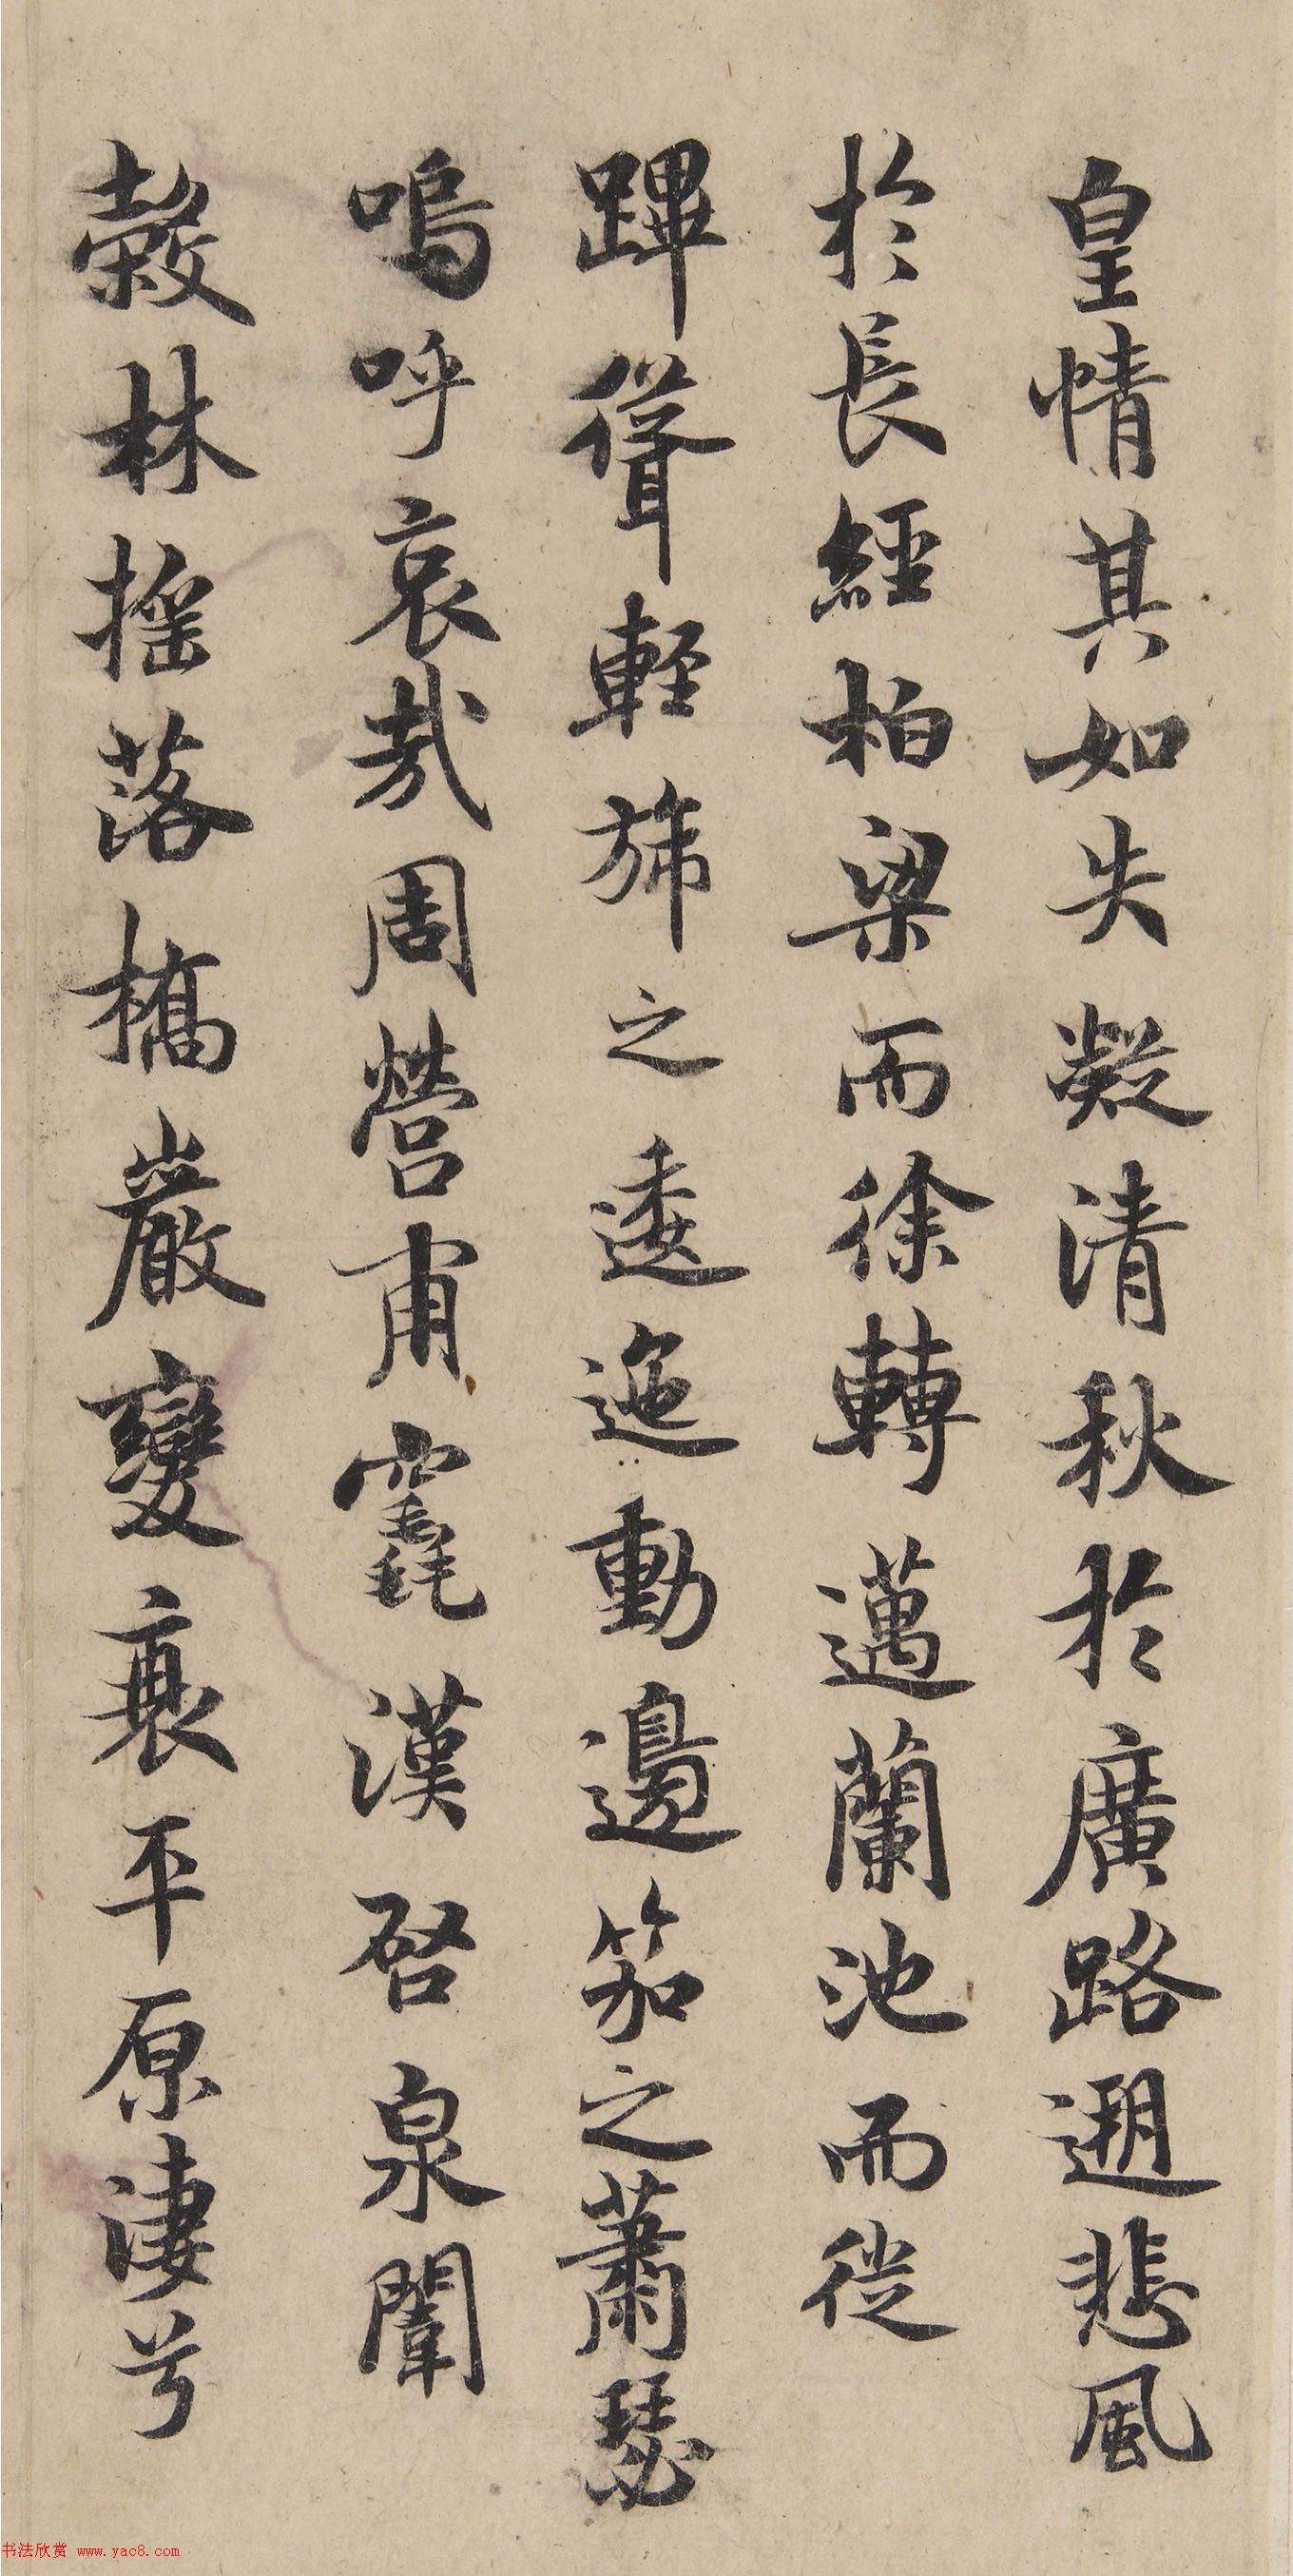 皇情其如失凝清秋於廣路遡悲風
於長經柏梁而徐轉邁蘭池而從
蹕聳輕旆之逶迤動邊笳之蕭瑟
嗚呼哀哉周營甫竁漢啓泉闈
穀林搖落橋巖變衰平原淒兮
书法欣赏 www.yac8.com